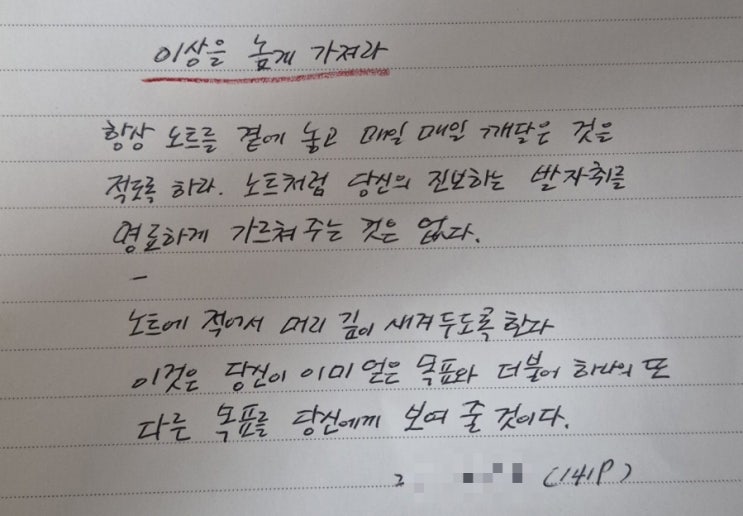 이상을 높게 가져라
항상 노트를 곁에 놓고 매일 매일 깨달은 것을
적도록 하라. 노트처럼 당신의 진보하는 발자취를
명료하게 가르쳐주는 것은 없다.
-
노트에 적어서 머리 깊이 새겨두도록 한다
이것은 당신이 이미 얻은 목표와 더불어 하나의 또
다른 목표를 당신에게 보여 줄 것이다.
(141P)